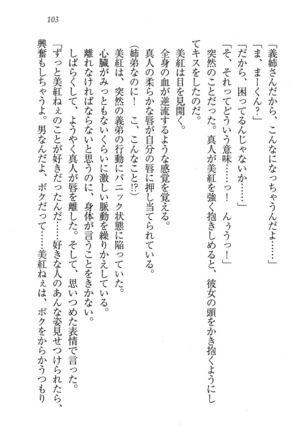 103
「義姉さんだから、こんなになっちゃうんだよ……」
「ま、まーくん？」
「だから、困ってるんじゃないか……」
「そ、それってどういう意味……っ！　んぅうっ！」
突然のことだった。真人が美紅を強く抱きしめると、彼女の頭をかき抱くようにし
てキスをしたのだ。
美紅は目を見開く。
全身の血が逆流するような感覚を覚える。
真人の柔らかな唇が自分の唇に押し当てられている。
（姉弟なのに！　こ、こんなこと!?）
美紅は、突然の義弟の行動にパニック状態に陥っていた。
心臓がみっともないくらいに激しい脈動を繰りかえしている。
離れなければならないと思うのに、身体が言うことをきかない。
しばらくして、ようやく真人が唇を離した。思いつめた表情で言った。
「ずっと美紅ねぇのことが好きだったんだ……好きな人のあんな姿見せつけられたら、
興奮もしちゃうよ。男なんだよ、ボクだって……美紅ねぇは、ボクをからかうつもり